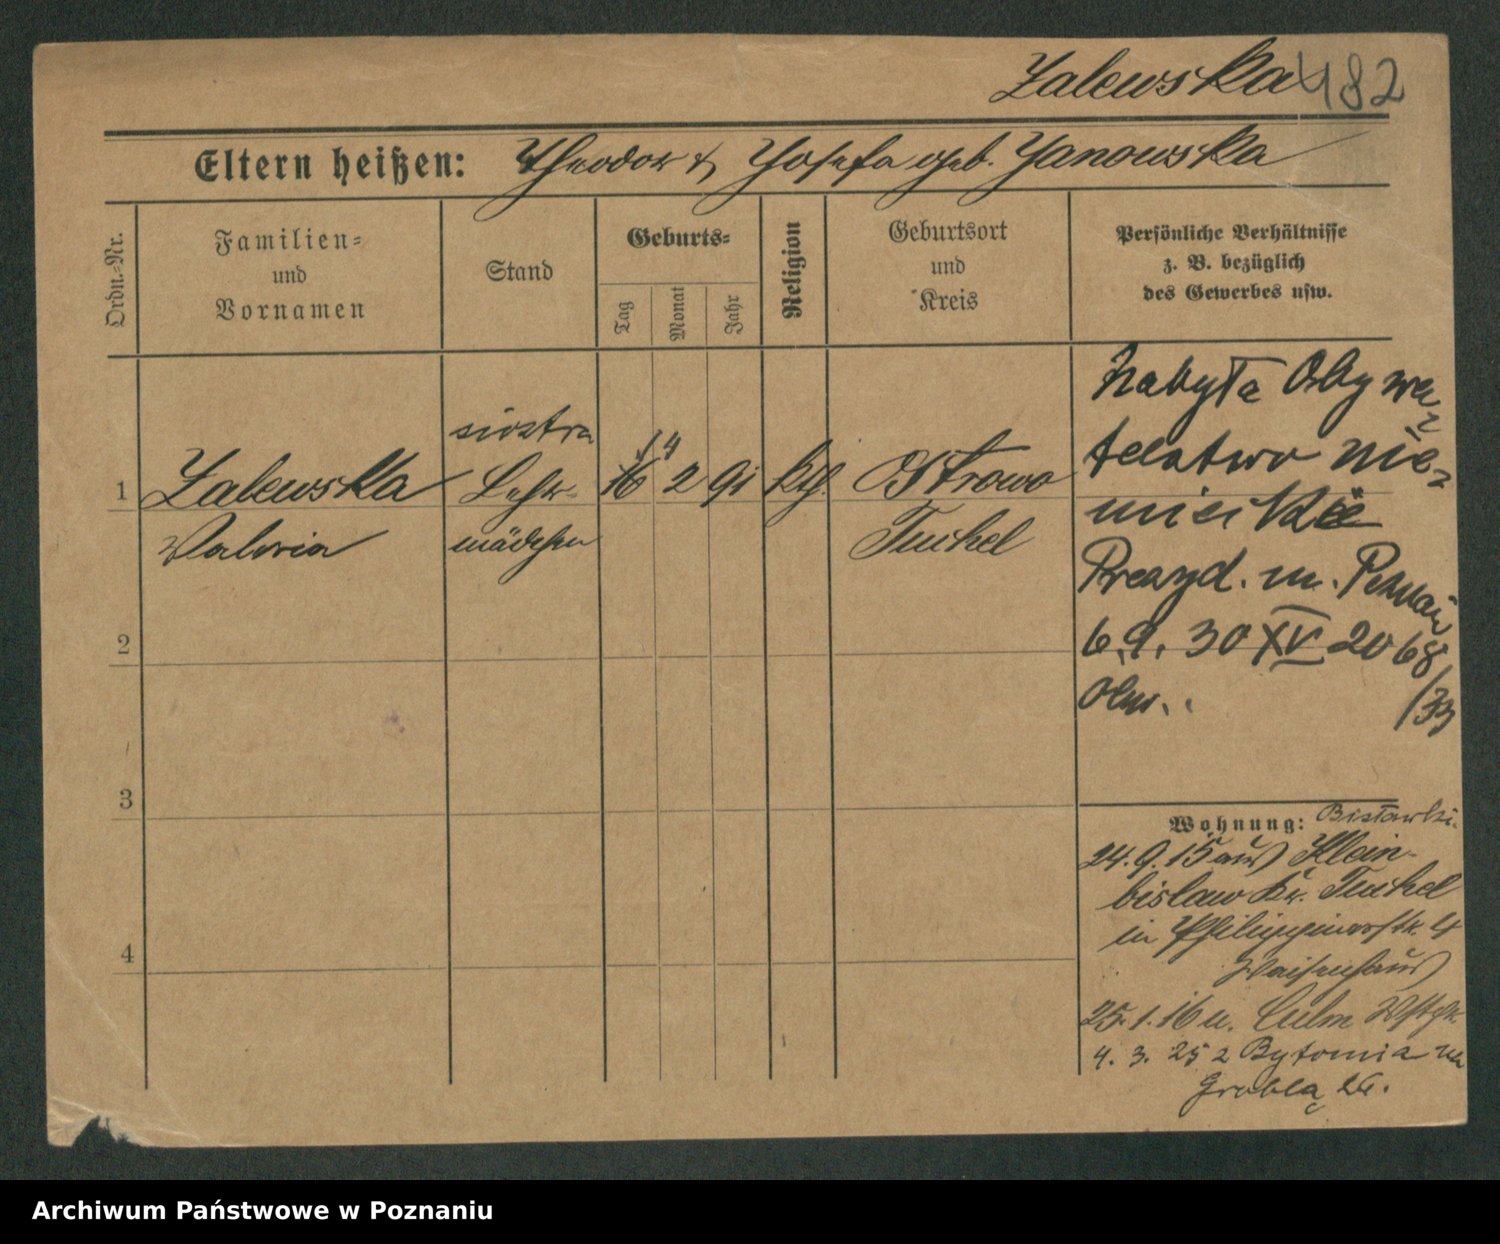 Zalewska 482
Eltern heißen: Theodor & Josefa geb. Janowska
Ordn.=Nr.
Familien=
und
Vornamen
Stand
Geburts=
Tag
Monat
Jahr
Religion
Geburtsort
und
Kreis
Persönliche Verhältnisse
z. B. bezüglich
des Gewerbes usw.
1
Zalewska
Valeria
siostra
Lehr-
mädchen
14
16 2 91
kth.
Ostrowo
Tuchel
Nabyła Obywa-
telstwo nie-
mieckie
Prezyd. m. Poznań
6.9.30 XV 2068
/33
2
3
4
Wohnung: Bisławki.
24.9.15 aus Klein-
bislaw Kr. Tuchel
in Philippinenstr. 4
Waisenhaus
25.1.16 n. Culm Wstpr.
4. 3. 25 z Bytomia na
Groblą 26.
Archiwum Państwowe w Poznaniu